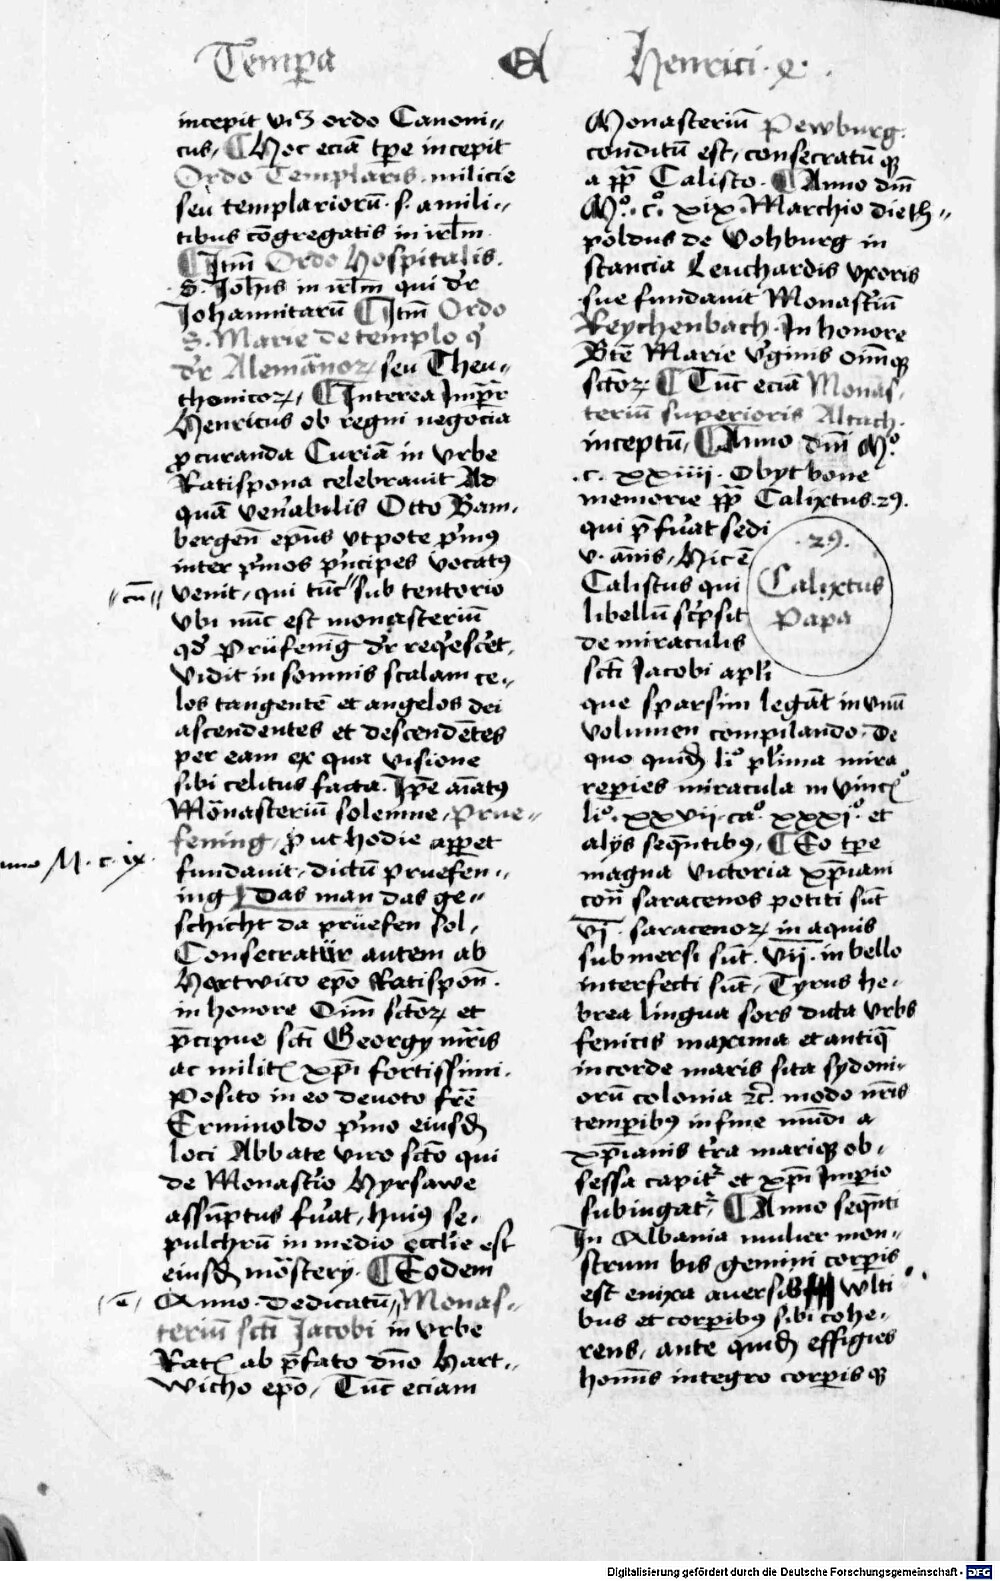 Tempa Henrici · q̃ ·
incepit viꝫ ordo Canoni//
cus, Hoc eciā tp̄e incepit
Ordo Templaris · milicie
seu templariorū · s · a mili·//
tibus cōgregatis in irl̄m ·
Itm̄ Ordo Hospitalis ·
· S · Joh̄is in irl̄m qui dr̄
Johannitarū Itm̄ Ordo
S · Marie de templo q̄
dr̄ Alemānoꝝ, seu Theu·//
thonicoꝝ, Interea Impr̄r
Henricus ob regni negocia
ꝓcuranda Curiā in vrbe
Ratispona celebravit Ad
quā ven̄abilis Otto Bam·
bergen̄ ep̄us vtpote p̄mꝰ
inter p̄mos p̄ncipes vocatꝰ
//cū// venit, qui tūc // sub tentorio
vbi nūc est monasteriū
qd̄ Prüfeniḡ dr̄ reqͥescēt,
vidit in somnis scalam ce·,
los tangentē et angelos dei
ascendentes et descendētes
per eam ex qua visione
sibi celitus facta · Ip̄e aīatꝰ
Mōnasteriū solemne, Prue·//
fening, ꝓut hodie apꝑet
Anno M · c · ix ·
fundavit, dictū pruefen·//
ing Das man das ge·//
schicht da prüefen sol,
Consecratūr autem ab
Hartwico ep̄o Ratispon̄ ·
in honore Oīm sc̄toꝝ et
p̄cipue sc̄ti Georgy mr̄is
ac milit xp̄i fortissimi ·
Posito in eo devoto fr̄ē
Erminoldo p̄mo eiusd̄
loci Abbate viro sc̄to qui
de Monast̄io Hyrsawe
assūptus fūat, huiꝰ se·,
pulchrū in medio eccl̄ie est
eiusd̄ mōstery · Eodem
//ē, Anno · Dedicatū // Monas·,
teriū sc̄ti Jacobi in vrbe
Rat ab p̄fato dn̄o Hart·//
wicho ep̄o, Tūc eciam
Monasteriū Pewburg ·
conditū est, consecratū qꝫ
a pp̄ Calisto · Anno dm̄
M̊ · c̊ · xix · Marchio dieth·//
poldus de vohburg in
stancia Leuchardis vxoris
sue fundavit Monast̄iū
Reychenbach · In honore
Btē Marie v̄ginis oīmqꝫ
sc̄toꝝ Tūc eciā Monas·
teriū superioris Altach ·
inceptū, Anno dm̄ M̊ ·
· c · xxiiii · Obyt bone
memorie pp̄ Calixtus · 29 ·
qui p̄fūat sedi
v · ānis, Hic ē
Calistus qui
libellū sc̄psit
de miraculis
sc̄ti Jacobi apl̄i
· 29 ·
Calixtus
Papa
que sparsim legāt in vnū
volumen compilando · De
quo quid̄ li̊ pl̄ima mira
reperies miracula in vinc̊
li̊ · xxvii · cå · xxxi̊ · et
alys seqn̄tibꝰ, Eo tp̄e
magna victoria xp̄iani
con̄ saracenos potiti sūt
vi̅ · saracenoꝝ in aquis
submersi sūt · vii̅ · in bello
interfecti sūt, Tyrus he·,
brea lingua sors dicta vrbs
fenicis maxima et antiq̄
in corde maris sita sydoni·,
orū colonia ꝛc̄ · modo nr̄is
temꝑibꝰ in fine mūdi a
xp̄ianis tr̄a mariqꝫ ob·,
sessa capit᷑ et xp̄i Imꝑio
subiugat᷑, Anno seqn̄ti
In Albania mulier mon·//
strum bis gemini corꝑis
est enixa aversis wlti
bus et corꝑibꝰ sibi cohe·,
rens, ante quid̄ effigies
homīs integro corꝑis qꝫ
Digitalisierung gefördert durch die Deutsche Forschungsgemeinschaft - DFG